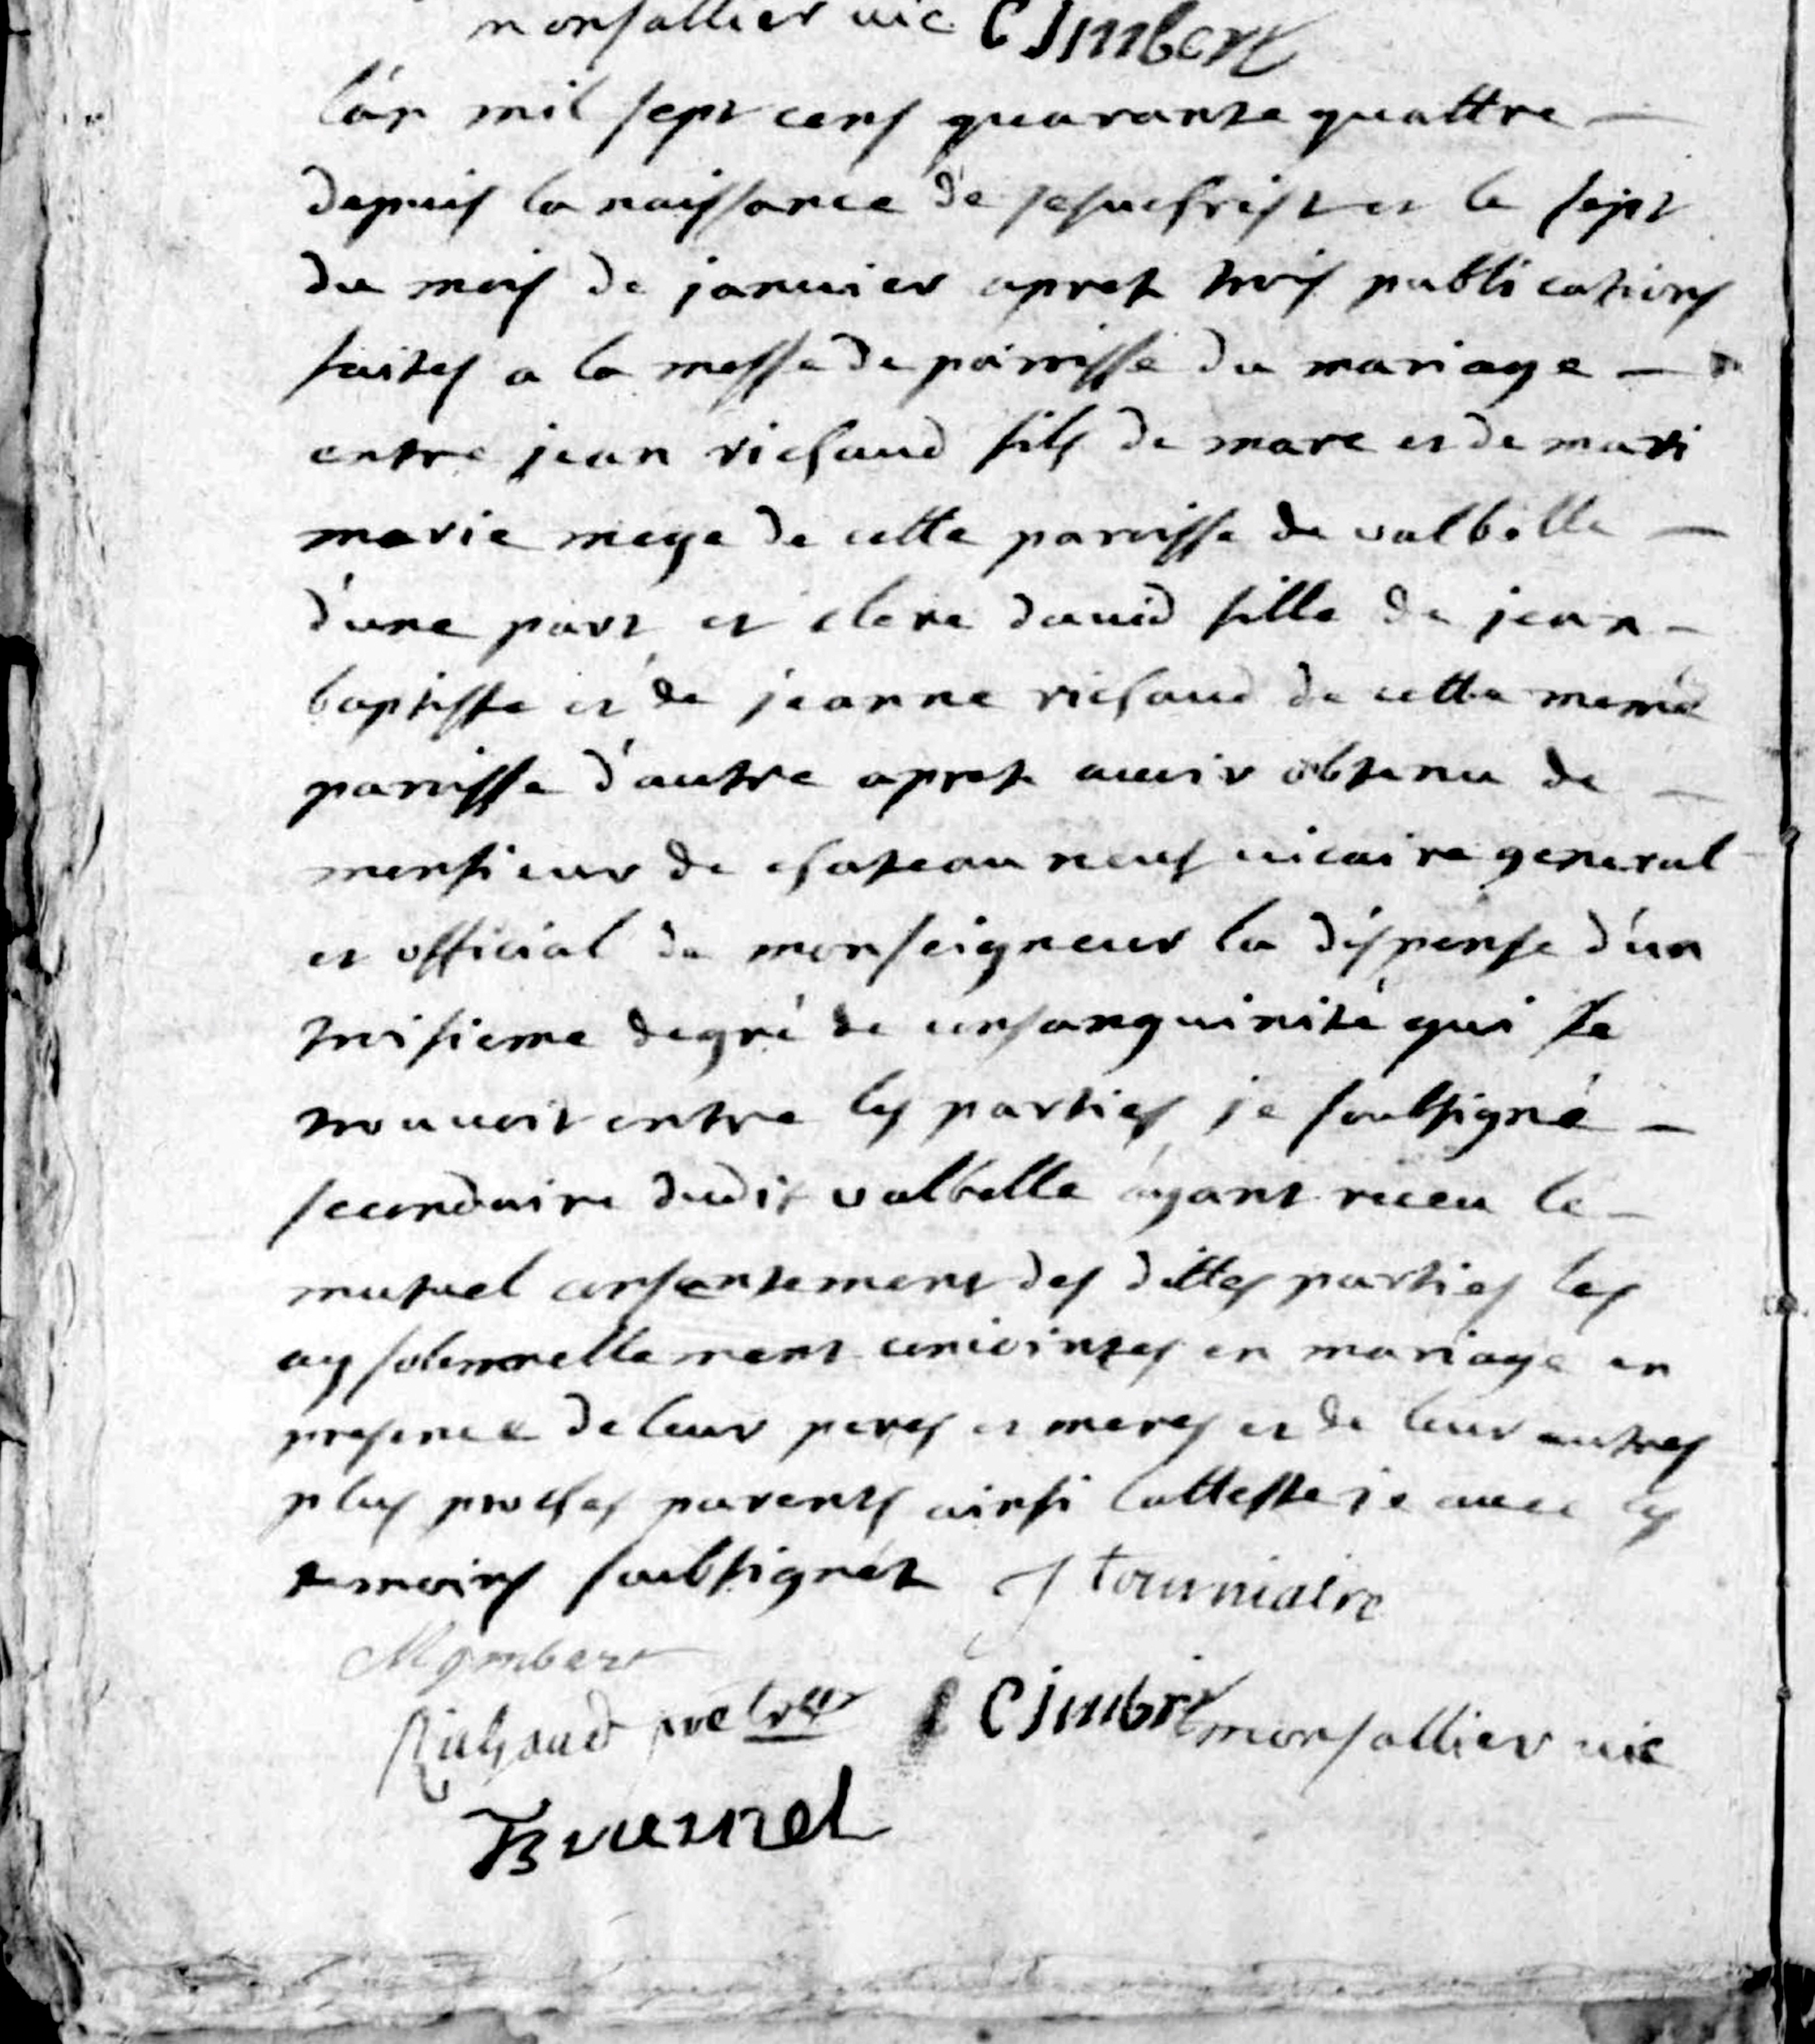 monsallier vic C Jmbert
l'an mil sept cens quarante quattre
depuis la naissance de jesuchrist et le sept
du mois de janvier aprez trois publications
faites a la messe de parroisse du mariage
entre jean richaud fils de marc et de mari
marie mege de cette paroisse de valbelle
d'une part et clere david fille de jean
baptiste et de jeanne richaud de cette meme
paroisse d'autre aprez avoir obtenu de
monsieur de chateau neuf vicaire general
et official de monseigneur la dispense d'un
troisieme degré de consanguinité qui se
trouvoit entre les parties je soubsigné
secondaire dudit valbelle ayant receu le
mutuel consentement des dittes parties les
ay solemnellement conjointes en mariage en
presence de leur peres et meres et de leur autres
plus proches parents ainsi l'atteste je avec les
temoins soubsignéz J tourniaire
M ymbert
Richaud pretre C jmbert monsallier vic
Brunet